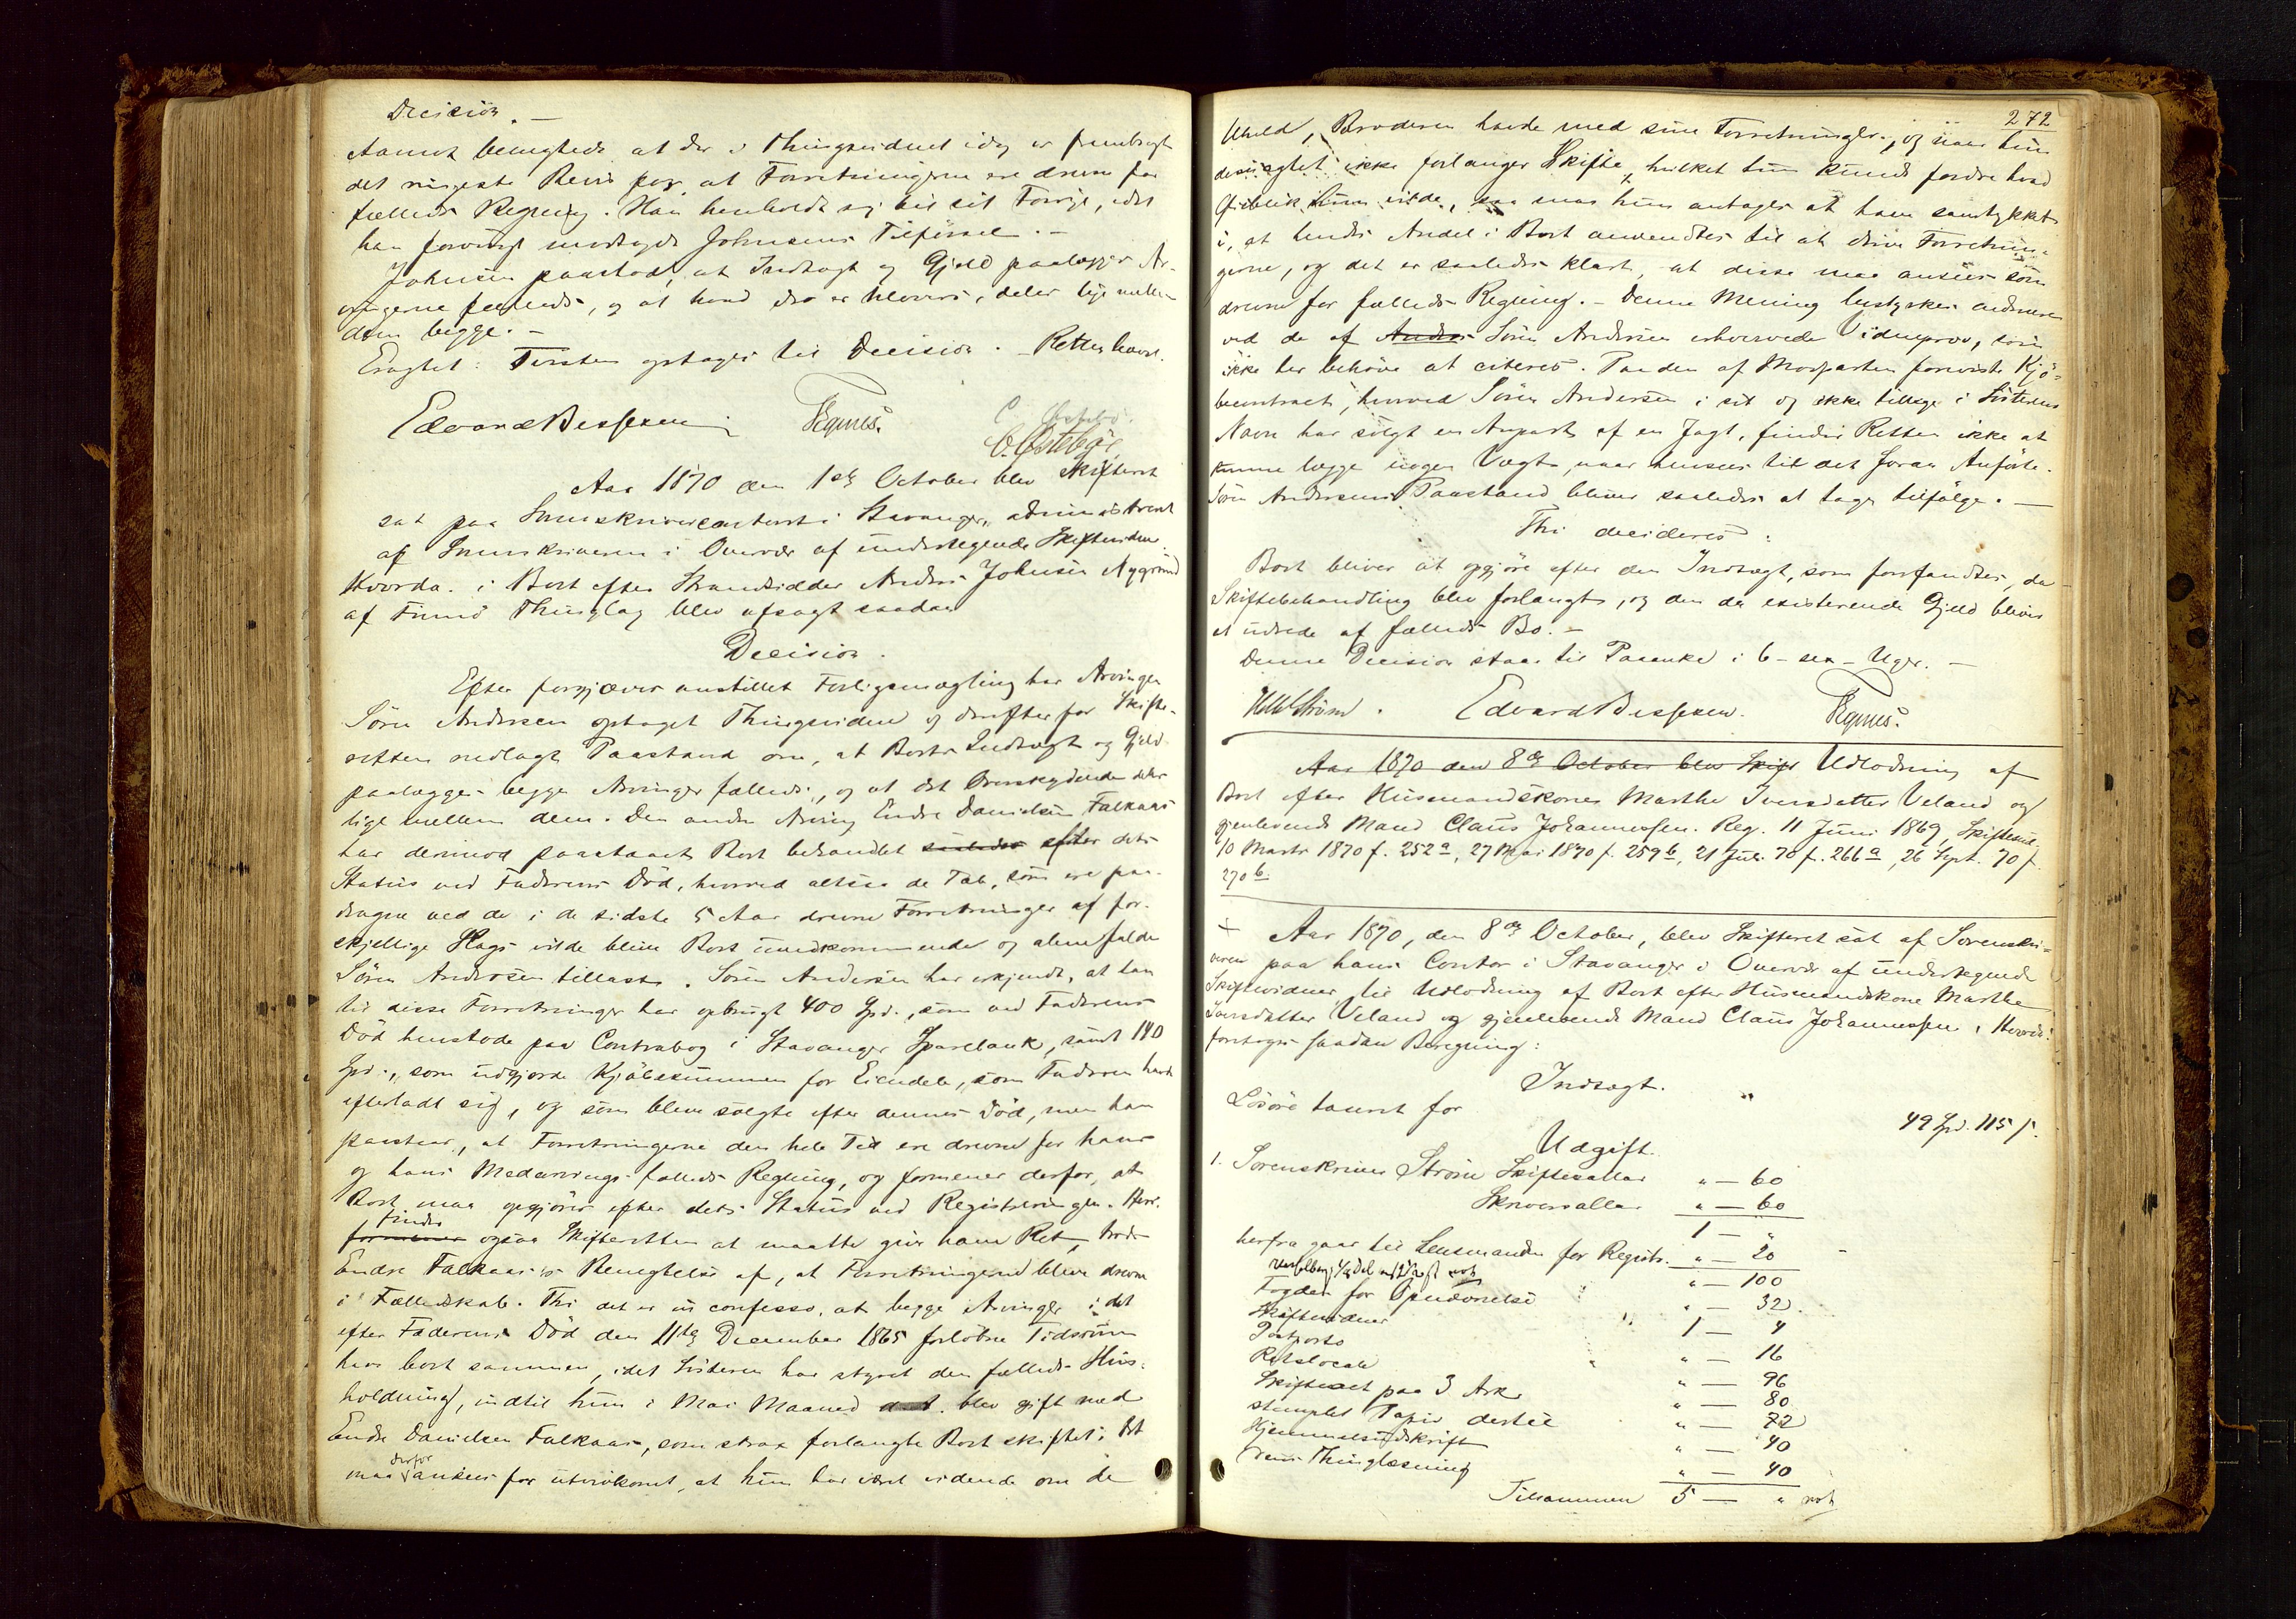 Decision. —
Aamot benegtede at der i Thingsvidnet idag er frembragt
det ringeste Bevis for, at Forretningerne ere drevne for
fælleds Regning. Han henholdt sig til sit Forrige, idet
han forøvrigt modsagde Johnsens Tilførsel. —
Johnsen paastod, at Indtægt og Gjeld paalægges Ar-
vingerne fælleds, og at hvad der er tilovers, deles lige mellem
dem begge. —
Eragtet: Tvisten optages til Decision. — Retten hævet.
Edvard Bessesen Tegnæs.
C. Østebø
Aar 1870 den 1ste October blev Skifteret
sat paa Sorenskrivercontoret i Stavanger, administreret
af Sorenskriveren i Overvær af undertegnede Skiftevidner
Hvorda. i Boet efter Strandsidder Anders Johnsen Nygrund
af Finnø Thinglag blev afsagt saadan
Decision.
Efter forgjæves anstillet Forligsmægling har Arvingen
Søren Andersen optaget Thingsvidne og derefter for Skifte-
retten nedlagt Paastand om, at Boets Indtægt og Gjeld
paalægges begge Arvinger fælleds, og at det Overskydende deles
lige mellem dem. Den anden Arving Endre Danielsen Falkaas
har derimod paastaaet Boet behandlet saaledes efter dets
Status ved Faderens Død, hvorved altsaa de Tab, som ere paa-
dragne ved de i de sidste 5 Aar drevne Forretninger af for-
skjellige Slags vilde blive Boet uvedkommende og alene falde
Søren Andersen tillast. Søren Andersen har erkjendt, at han
til disse Forretninger har opbrugt 400 Spd., som ved Faderens
Død henstode paa Contrabog i Stavanger Sparebank, samt 140
Spd., som udgjorde Kjøbesummen for Eiendele, som Faderen havde
efterladt sig, og som bleve solgte efter dennes Død, men han
paastaar, at Forretningerne den hele Tid ere drevne for hans
og hans Medarvings fælleds Regning, og formener derfor, at
Boet maa opgjøres efter dets Status ved Registreringen. Heri
finder
formener ogsaa Skifteretten at maatte give ham Ret, trods
Endre Falkaas's Benegtelse af, at Forretningerne bleve drevne
i Fælledskab. Thi det er in confesso, at begge Arvinger i det
efter Faderens Død den 11te December 1865 forløbne Tidsrum
have boet sammen, idet Søsteren har styret den fælleds Huus-
holdning, indtil hun i Mai Maaned blev gift med
Endre Danielsen Falkaas, som strax forlangte Boet skiftet; det
derfor
maa ansees for utvivlsomt, at hun har været vidende om de
272
Uheld, Broderen havde med sine Forretninger, og naar hun
desuagtet ikke forlanger Skifte, hvilket hun kunde fordre hvad
Øieblik hun vilde, saa maa hun antages at have samtykket
i, at hendes Andel i Boet anvendtes til at drive Forretnin-
gerne, og det er saaledes klart, at disse maa ansees som
drevne for fælleds Regning. — Denne Mening bestyrkes endmere
ved de af Anders Søren Andersen erhvervede Vidneprov, som
ikke her behøve at citeres. Paa den af Modparten foreviste Kjø-
becontract, hvorved Søren Andersen i sit og ikke tillige i Søsterens
Navn har solgt en Anpart af en Jagt, finder Retten ikke at
kunne lægge nogen Vægt, naar hensees til det foran Anførte.
Søren Andersens Paastand bliver saaledes at tage tilfølge. —
Thi decideres:
Boet bliver at opgjøre efter den Indtægt, som forefandtes, da
Skiftebehandling blev forlangt, og den da existerende Gjeld bliver
at udrede af fælleds Bo. —
Denne Decision staar til Paaanke i 6 – sex – Uger. —
Edvard Bessesen. Tegnæs.
Aar 1870 den 8de October blev Skift Udlodning af
Boet efter Huusmandskone Marthe Iversdatter Veland og
gjenlevende Mand Claus Johannessen. Reg. 11 Juni 1869, Skiftesaml.
10 Marts 1870 f. 252a, 27 Mai 1870 f. 259b, 21 Juli 70 f. 266a, 26 Sept. 70 f.
270b.
Aar 1870, den 8de October, blev Skifteret sat af Sorenskri-
veren paa hans Contor i Stavanger i Overvær af undertegnede
Skiftevidner til Udlodning af Boet efter Huusmandskone Marthe
Iversdatter Veland og gjenlevende Mand Claus Johannessen. Hvorda:
foretoges saadan Beregning:
Indtægt.
Løsøre taxeret for 49 Spd. 115 s.
Udgift.
1. Sorenskriver Strøm Skiftesallar " — 60
Skriversallar " — 60
1 — "
herfra gaar til Lensmanden for Registr. " — 20
" — 100
Fogden for Opnævnelse " — 32
Skiftevidner 1 — 4
Postporto " — 16
Retslocale " — 96
Skifteact paa 3 Ark " — 80
stemplet Papir dertil " — 72
Hjemmelsudskrift " — 40
dens Thinglæsning " — 40
Tilsammen 5 — "